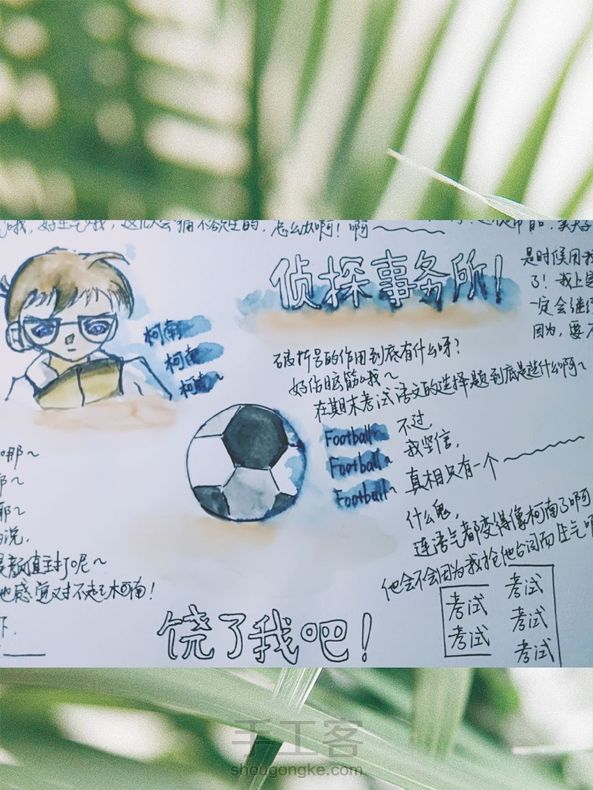 好生气哦，这次会痛不欲生的，怎么办啊！啊～
是时候用
了！我上
一定会继
因为，要
侦探事务所！
柯南~
柯南~
柯南~
破折号的作用到底有什么呀？
好伤脑筋哦~
在期末考试语文的选择题到底是选什么啊~
Football~
Football~
Football~
不过，
我坚信，
真相只有一个
什么鬼，
连语气都变得像柯南了啊
他会不会因为我抢他台词而生气
哪~
说，
颜值主打呢~
感觉对不起柯南！
考试
考试
考试
考试
考试
饶了我吧！
手工客
shougongke.com